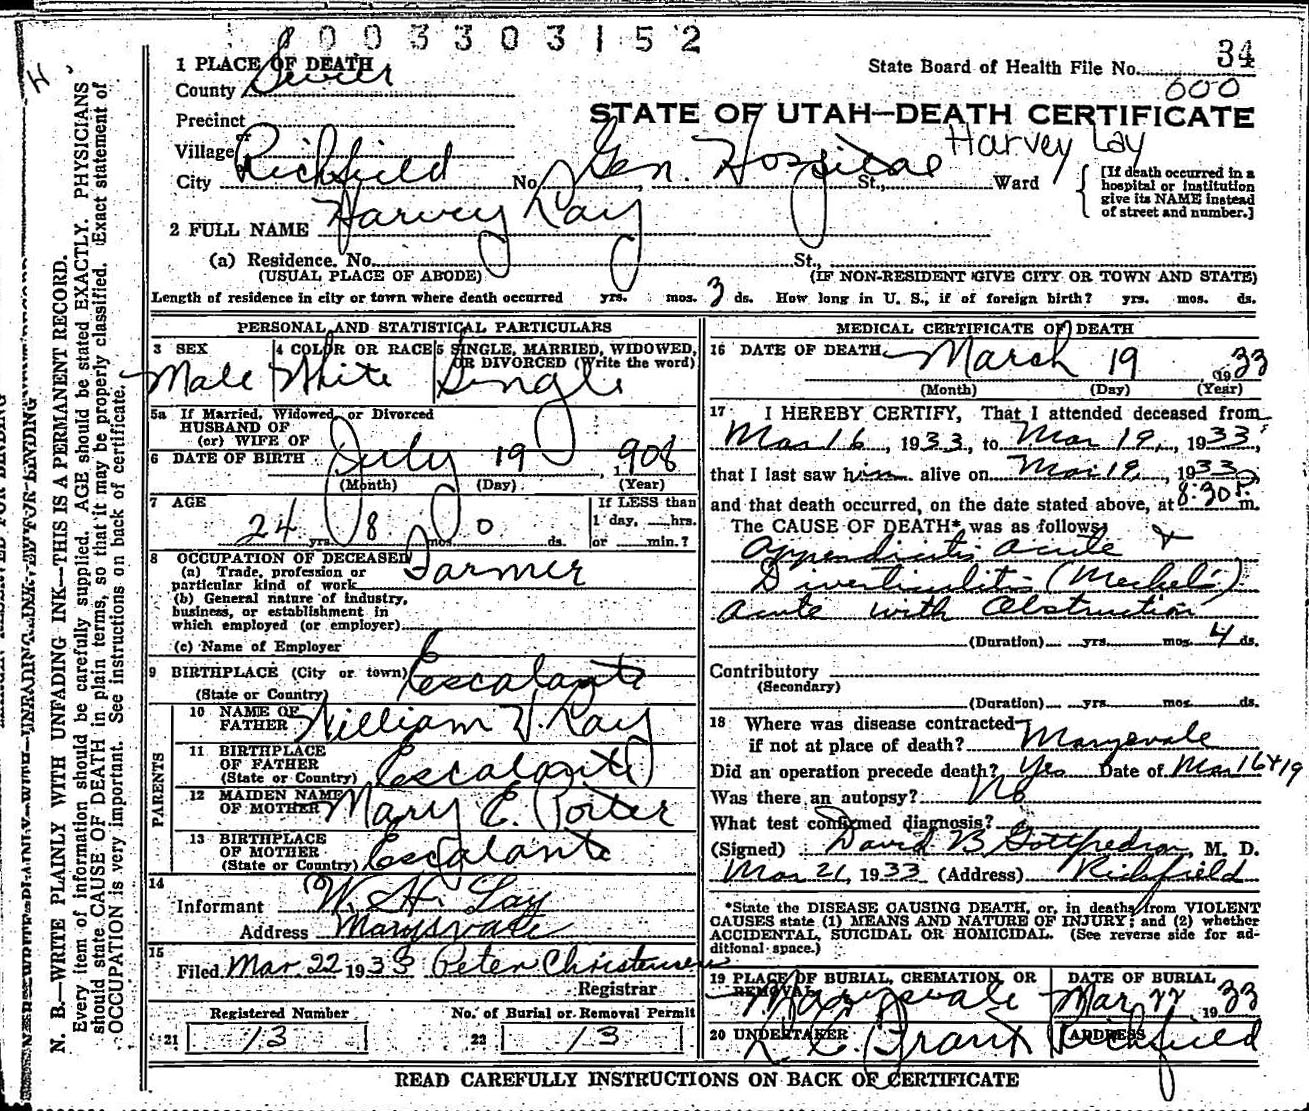 003303152
34
1 PLACE OF DEATH
State Board of Health File No.
County Sevier
000
STATE OF UTAH—DEATH CERTIFICATE
Precinct
or
Village
Harvey Lay
City Richfield No. Gen. Hospital St., Ward
[If death occurred in a hospital or institution give its NAME instead of street and number.]
2 FULL NAME Harvey Lay
(a) Residence. No. St.,
(USUAL PLACE OF ABODE) (IF NON-RESIDENT GIVE CITY OR TOWN AND STATE)
Length of residence in city or town where death occurred yrs. mos. 3 ds. How long in U. S., if of foreign birth? yrs. mos. ds.
PERSONAL AND STATISTICAL PARTICULARS
3 SEX 4 COLOR OR RACE 5 SINGLE, MARRIED, WIDOWED, OR DIVORCED (Write the word)
Male White Single
5a If Married, Widowed, or Divorced
HUSBAND OF
(or) WIFE OF
6 DATE OF BIRTH July 19, 1908
(Month) (Day) (Year)
7 AGE
24 yrs. 8 mos. 0 ds.
If LESS than
1 day, hrs.
or min.?
8 OCCUPATION OF DECEASED
(a) Trade, profession or
particular kind of work Farmer
(b) General nature of industry,
business, or establishment in
which employed (or employer)
(c) Name of Employer
9 BIRTHPLACE (City or town) Escalante
(State or Country)
PARENTS
10 NAME OF
FATHER William H. Lay
11 BIRTHPLACE
OF FATHER Escalante
(State or Country)
12 MAIDEN NAME
OF MOTHER Mary E. Porter
13 BIRTHPLACE
OF MOTHER Escalante
(State or Country)
14
Informant W. H. Lay
Address Marysvale
15
Filed Mar. 22 1933 Peter Christensen
Registrar
Registered Number No. of Burial or Removal Permit
21 13 22 13
MEDICAL CERTIFICATE OF DEATH
16 DATE OF DEATH March 19 1933
(Month) (Day) (Year)
17 I HEREBY CERTIFY, That I attended deceased from
Mar 16, 1933, to Mar 19, 1933,
that I last saw him alive on Mar 19, 1933,
and that death occurred, on the date stated above, at 8:30 P. m.
The CAUSE OF DEATH* was as follows:
Appendicitis acute &
Diverticulitis (Meckel's)
acute with Obstruction
(Duration) yrs. mos. 4 ds.
Contributory
(Secondary)
(Duration) yrs. mos. ds.
18 Where was disease contracted
if not at place of death? Marysvale
Did an operation precede death? Yes Date of Mar 16 & 19
Was there an autopsy? No
What test confirmed diagnosis?
(Signed) David B Gottfredson, M. D.
Mar 21, 1933 (Address) Richfield
*State the DISEASE CAUSING DEATH, or, in deaths from VIOLENT
CAUSES state (1) MEANS AND NATURE OF INJURY; and (2) whether
ACCIDENTAL, SUICIDAL OR HOMICIDAL. (See reverse side for ad-
ditional space.)
19 PLACE OF BURIAL, CREMATION, OR REMOVAL DATE OF BURIAL
Marysvale Mar 22 1933
20 UNDERTAKER ADDRESS
Richfield
READ CAREFULLY INSTRUCTIONS ON BACK OF CERTIFICATE
N. B.—WRITE PLAINLY WITH UNFADING INK—THIS IS A PERMANENT RECORD.
Every item of information should be carefully supplied. AGE should be stated EXACTLY. PHYSICIANS
should state CAUSE OF DEATH in plain terms, so that it may be properly classified. Exact statement of
OCCUPATION is very important. See instructions on back of certificate.